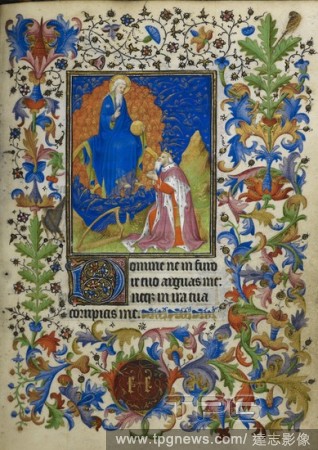 Domine ne in furo
re tuo arguas me:
neqz in ira tua
corripias me.
TPG
www.tpgnews.com/ 達志影像